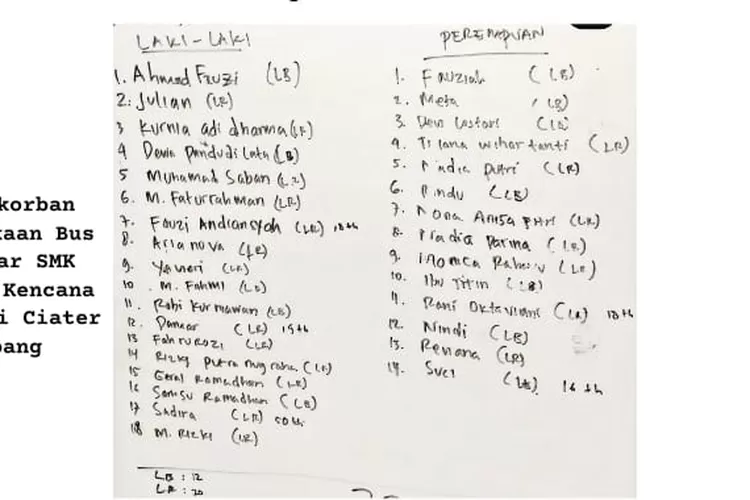 korban
kaan Bus
ar SMK
Kencana
i Ciater
bang
LAKI-LAKI
1. Ahmad Fauzi (LB)
2. Julian (LR)
3 Kurnia adi dharma (LR)
4 Dewa (LB)
5 Muhamad Saban
6. M. Faturrahman (LR)
7. Fauzi Andiansyah (LR) 18 th
8. Aria nova (LR)
9. (LR)
10. M. Fahmi (LB)
11. Robi Kurniawan (LB)
12. (LR) 15 th
13 Fahrurozi (LR)
14 Rizky putra nugraha (LR)
15 Ramadhan (LR)
16 Samsu Ramadhan (LB)
17 Sadira (LR) 50 th
18 M. Rizki (LR)
LB : 12
LR : 20
PEREMPUAN
1. Fauziah (LB)
2. Meta LB)
3. Dewi Lestari (LB
4. wihartanti (LR)
5. Putri (LR)
6. (LB)
7. Nona Anisa Putri (LR)
8. (LR)
9. (LR)
10. Ibu Titin (LB)
11. Rani Oktaviani (LR) 18 th
12. Nindi (LB)
13. Renana (LR)
14. Suci (LB) 16 th